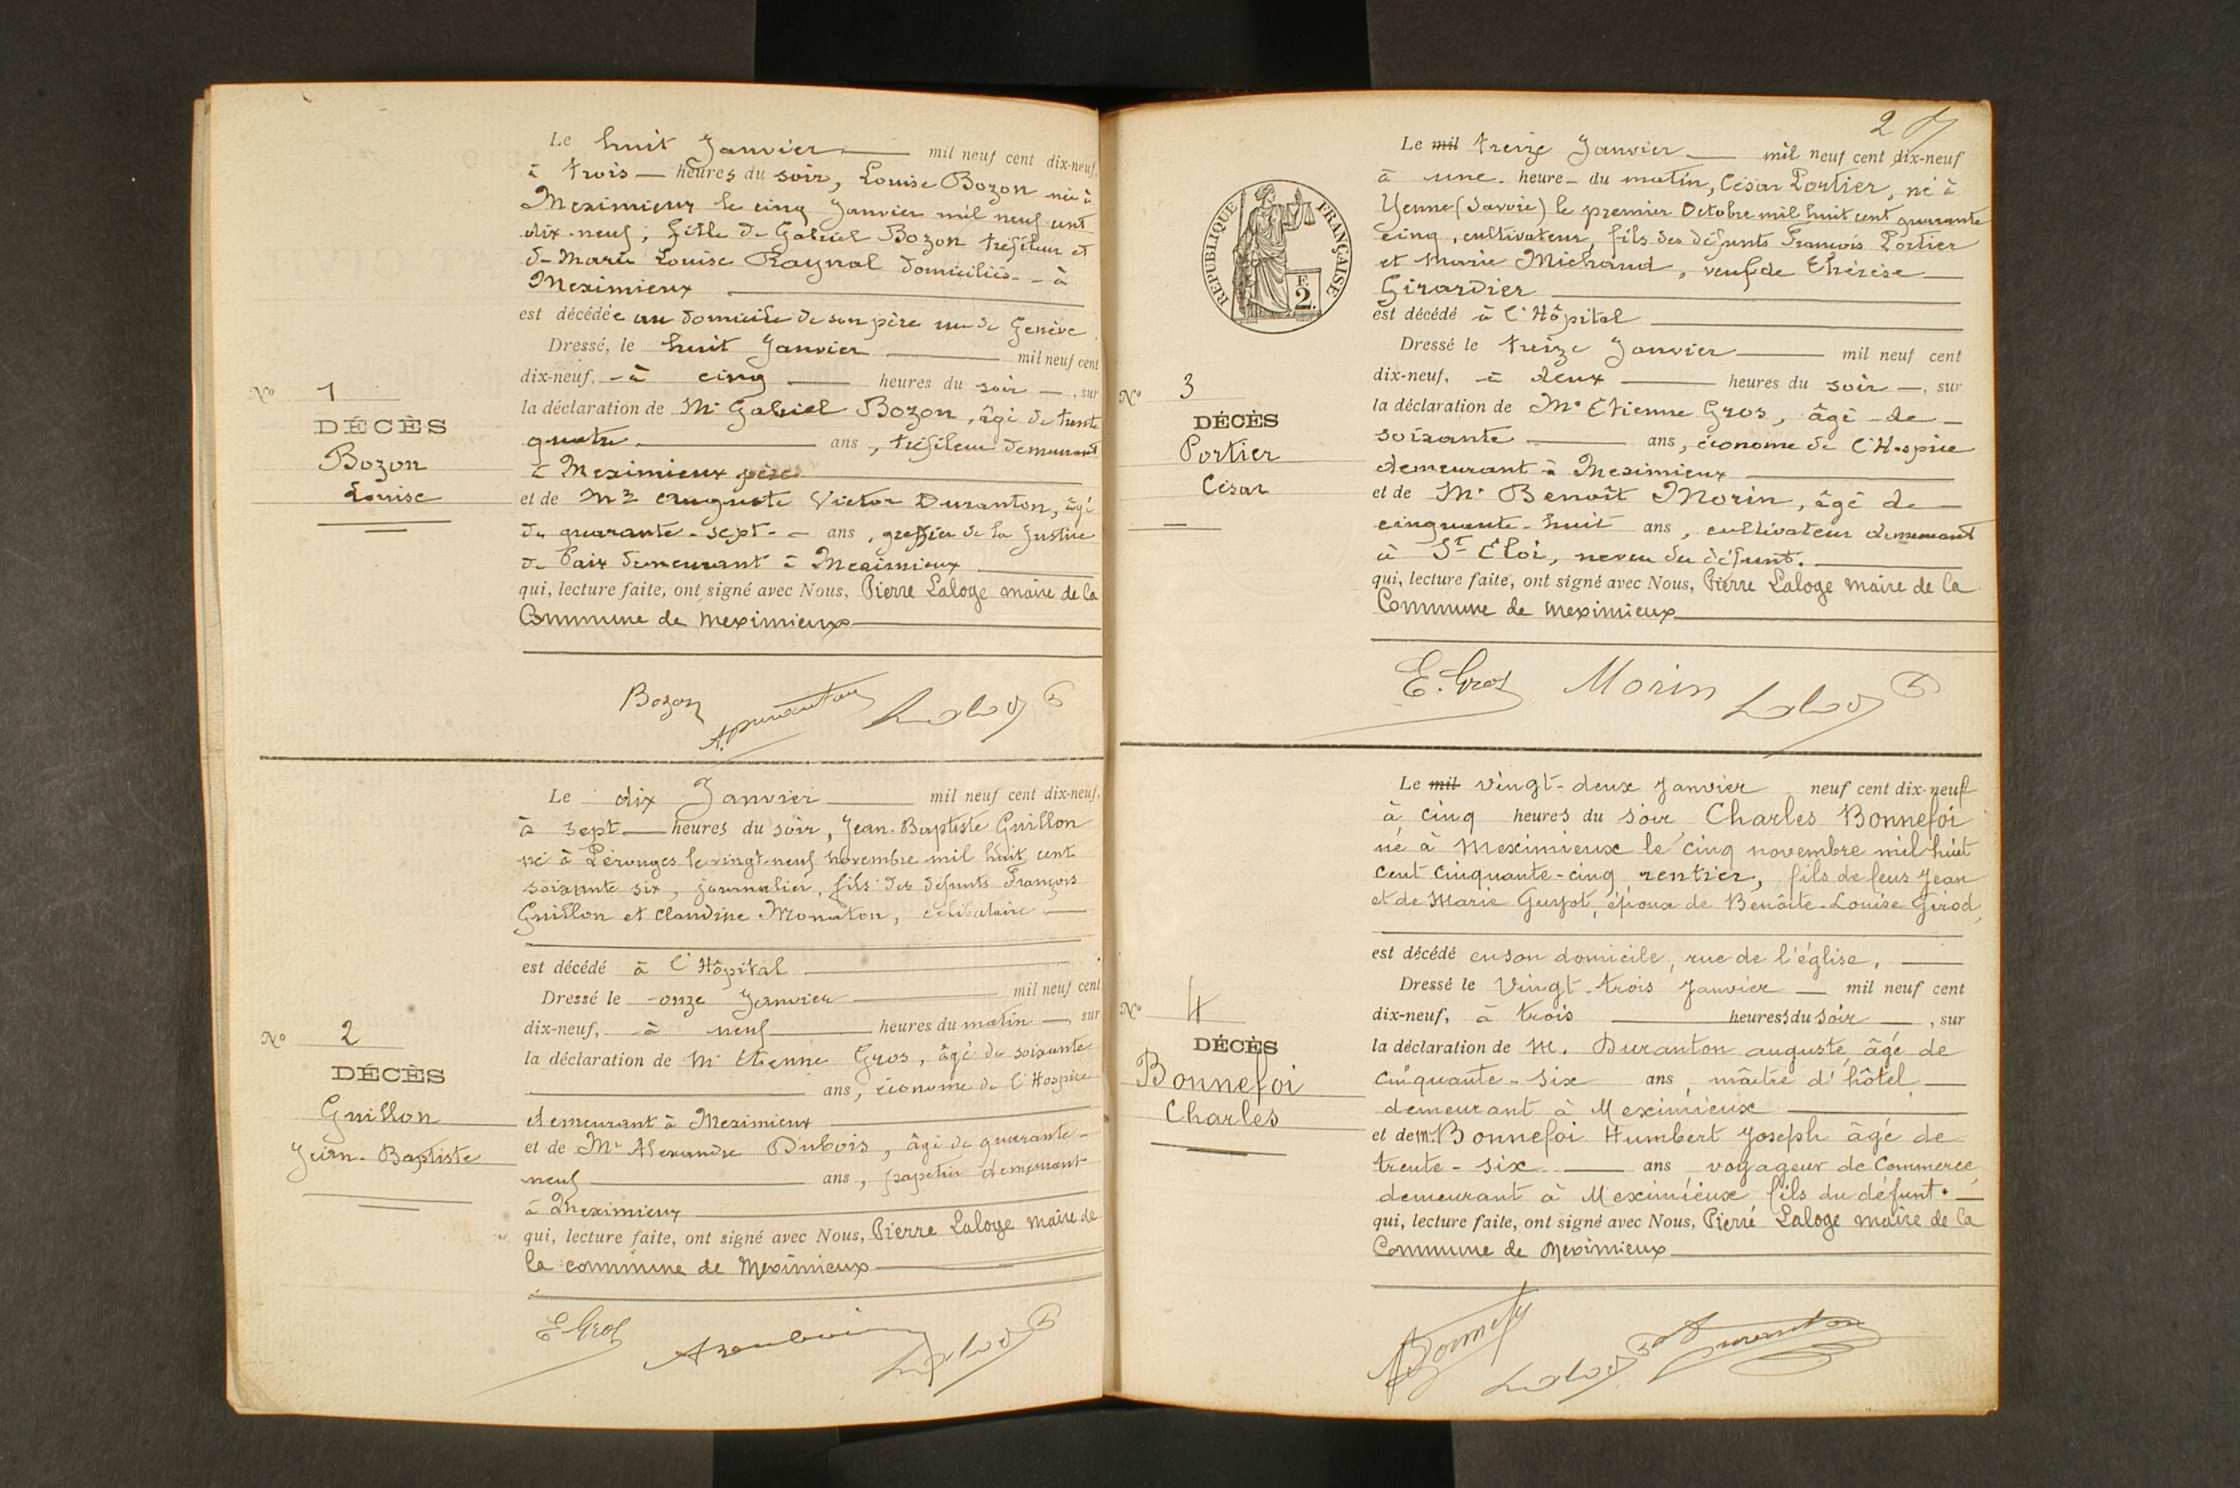 Le huit Janvier mil neuf cent dix-neuf,
à trois heures du soir, Louise Bozon née à
Meximieux le cinq Janvier mil neuf cent
dix-neuf, fille de Gabriel Bozon tréfileur et
de Marie Louise Raynal domiciliés à
Meximieux
est décédée au domicile de son père rue de Genève
Dressé, le huit Janvier mil neuf cent
dix-neuf, à cinq heures du soir, sur
la déclaration de Mr Gabriel Bozon, âgé de trente
quatre ans, tréfileur demeurant
à Meximieux père
et de Mr Auguste Victor Duranton, âgé
de quarante-sept ans, greffier de la Justice
de Paix demeurant à Meximieux
qui, lecture faite, ont signé avec Nous, Pierre Laloge maire de la
Commune de Meximieux
No 1
DÉCÈS
Bozon
Louise
Bozon A. Duranton Laloge
Le dix Janvier mil neuf cent dix-neuf,
à sept heures du soir, Jean-Baptiste Guillon
né à Pérouges le vingt-neuf novembre mil huit cent
soixante six, journalier, fils des défunts François
Guillon et Claudine Monaton, célibataire
est décédé à l'Hôpital
Dressé le onze Janvier mil neuf cent
dix-neuf, à neuf heures du matin, sur
la déclaration de Mr Etienne Gros, âgé de soixante
ans, économe de l'Hospice
demeurant à Meximieux
et de Mr Alexandre Dubois, âgé de quarante-
neuf ans, papetier demeurant
à Meximieux
qui, lecture faite, ont signé avec Nous, Pierre Laloge maire de
la commune de Meximieux
No 2
DÉCÈS
Guillon
Jean-Baptiste
E. Gros Laloge
2
REPUBLIQUE FRANÇAISE
F.
2.
Le mil treize Janvier mil neuf cent dix-neuf
à une heure du matin, César Portier, né à
Yenne (Savoie) le premier Octobre mil huit cent quarante
cinq, cultivateur, fils des défunts François Portier
et Marie Michaud, veuf de Thérèse
Girardier
est décédé à l'Hôpital
Dressé le treize Janvier mil neuf cent
dix-neuf, à deux heures du soir, sur
la déclaration de Mr Etienne Gros, âgé de
soixante ans, économe de l'Hospice
demeurant à Meximieux
et de Mr Benoît Morin, âgé de
cinquante-huit ans, cultivateur demeurant
à St Eloi, neveu du défunt.
qui, lecture faite, ont signé avec Nous, Pierre Laloge maire de la
Commune de Meximieux
No 3
DÉCÈS
Portier
César
E. Gros Morin Laloge
Le mil vingt-deux Janvier neuf cent dix-neuf
à cinq heures du soir Charles Bonnefoi
né à Meximieux le cinq novembre mil huit
cent cinquante-cinq rentier, fils de feus Jean
et de Marie Guyot, époux de Benôite-Louise Girod,
est décédé en son domicile, rue de l'église,
Dressé le Vingt-trois Janvier mil neuf cent
dix-neuf, à trois heures du soir, sur
la déclaration de M. Duranton auguste, âgé de
cinquante-six ans, maître d'hôtel
demeurant à Meximieux
et de M. Bonnefoi Humbert Joseph âgé de
trente-six ans voyageur de Commerce,
demeurant à Meximieux fils du défunt.
qui, lecture faite, ont signé avec Nous, Pierre Laloge maire de la
Commune de Meximieux
No 4
DÉCÈS
Bonnefoi
Charles
Laloge Duranton